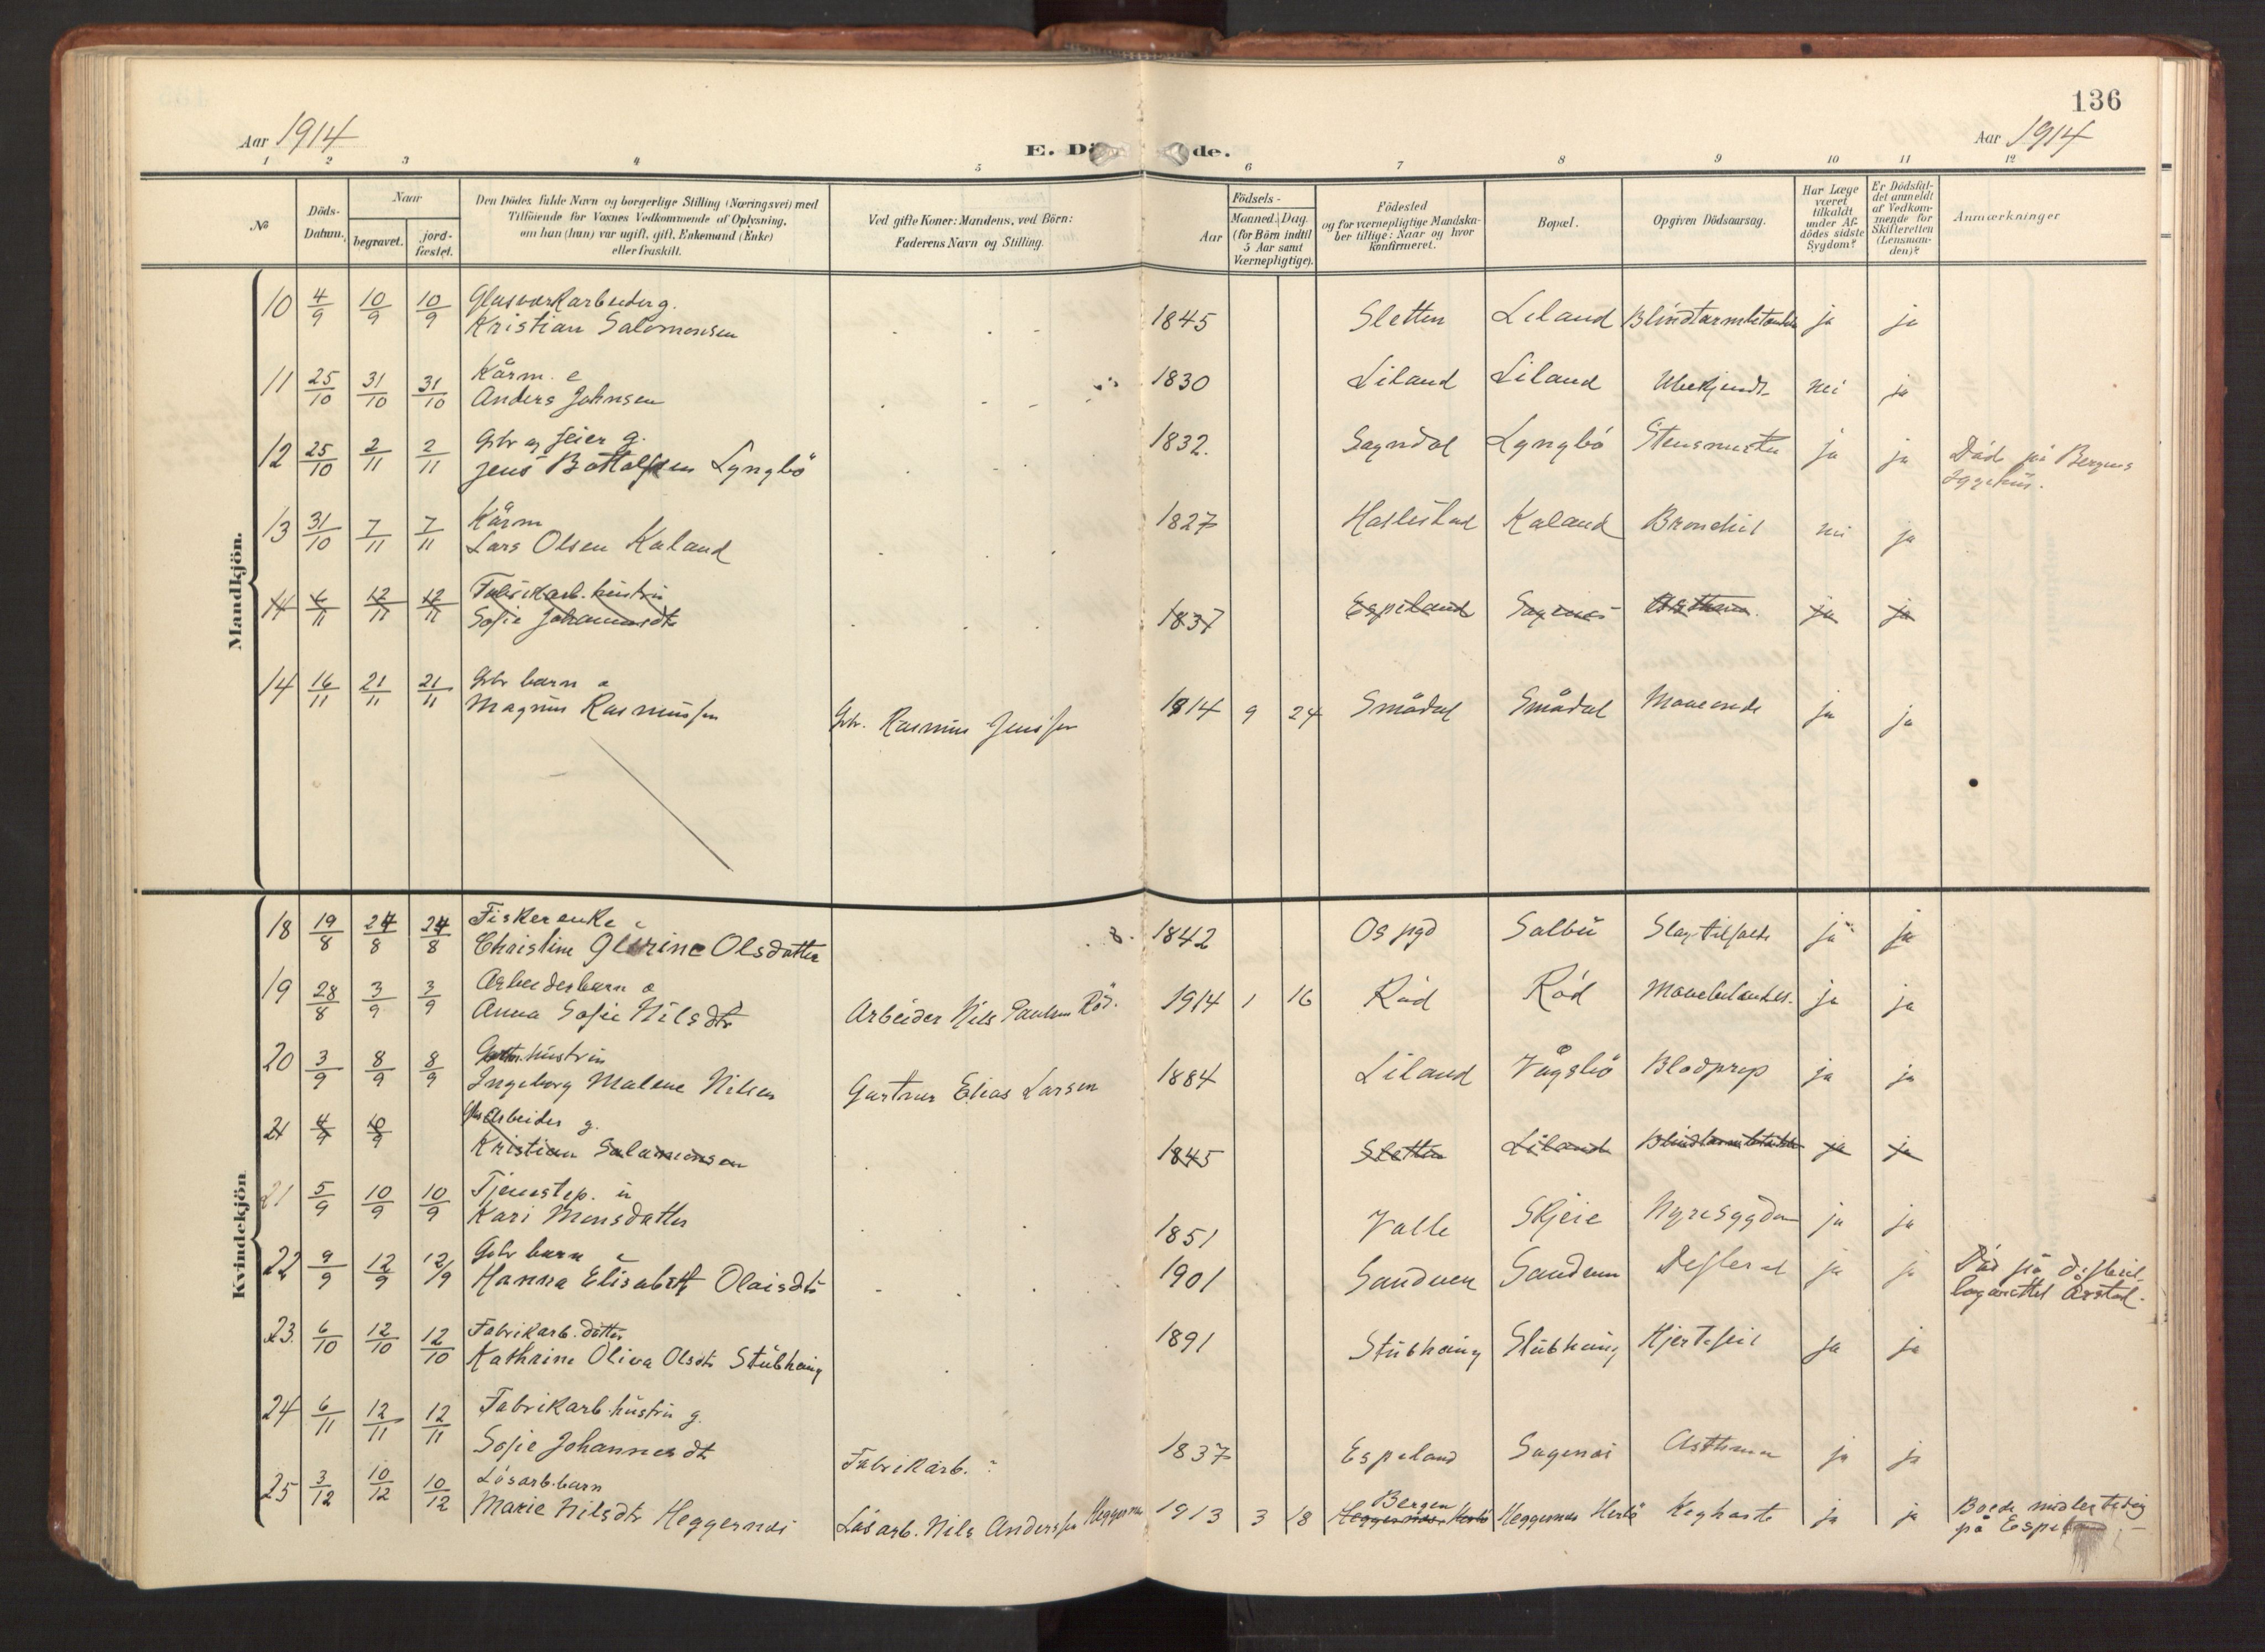 136
Aar 1914
E. Dö de.
Aar 1914
1 2 3 4 5 6 7 8 9 10 11 12
№
Döds-Datum.
Naar
begravet.
jord-fæstet.
Den Dödes fulde Navn og borgerlige Stilling (Næringsvei) med
Tilföiende for Voxnes Vedkommende af Oplysning,
om han (hun) var ugift, gift, Enkemand (Enke)
eller fraskilt.
Ved gifte Koner: Mandens, ved Börn:
Faderens Navn og Stilling.
Födsels-
Aar
Maaned. Dag.
(for Börn indtil
5 Aar samt
Værnepligtige).
Födested
og for værnepligtige Mandska-
ber tillige: Naar og hvor
konfirmeret.
Bopæl.
Opgiven Dödsaarsag.
Har Læge
været
tilkaldt
under Af-
dödes sidste
Sygdom?
Er Dödsfal-
det anmeldt
af Vedkom-
mende for
Skifteretten
(Lensman-
den)?
Anmærkninger
Mandkjön.
10 4/9 10/9 10/9 Glasværkarbeider g.
Kristian Salomonsen 1845 Sletten Liland ja ja
11 25/10 31/10 31/10 Kårm. e
Anders Johnsen 1830 Liland Liland Ubekjendt nei ja
12 25/10 2/11 2/11 Gbr og feier g.
Jens Bottolfsen Lyngbö 1832. Sogndal Lyngbö ja ja Död på Bergens
Sygehus.
13 31/10 7/11 7/11 Kårm
Lars Olsen Kaland 1827 Kaland Bronchit nei ja
14 6/11 12/11 12/11 Fabrikarb. hustru
Sofie Johannesdtr 1837 Espeland Sagenes Asthma. ja ja
14 16/11 21/11 21/11 Gbr barn
Magnus Rasmussen Gbr. Rasmus Jenssen 1914 9 24 Smådal Smådal ja ja
Kvindekjön
18 19/8 24/8 24/8 Fiskerenke
Christine Olsdatter 1842 Os pgd Salbu Slagtilfælde ja ja
19 28/8 3/9 3/9 Arbeiderbarn
Anna Sofie Nilsdtr Arbeider Nils Paulsen Röd. 1914 1 16 Röd Röd ja ja
20 3/9 8/9 8/9 Gartn. hustru
Ingeborg Malene Nilsen Gartner Elias Larsen 1884 Liland Vågsbö Blodprop ja ja
21 4/9 10/9 Arbeider g.
Kristian Salamonsen 1845 Sletten Liland ja ja
21 5/9 10/9 10/9 Tjenestep. u
Kari Monsdatter 1851 Valle Skjeie Nyresygdom ja ja
22 9/9 12/9 12/9 Gbr barn
Hanna Elisabeth Olaisdtr 1901 Sandven Sandven ja ja Död på
lazarettet Årstad.
23. 6/10 12/10 12/10 Fabrikarb. datter
Kathrine Oliva Olsdtr Stubhaug 1891 Stubhaug Stubhaug Hjertefeil ja ja
24 6/11 12/11 12/11 Fabrikarb. hustru g.
Sofie Johannesdtr Fabrikarb. 1837 Espeland Sagenes Asthma ja ja
25 3/12 10/12 10/12 Lösarb. barn
Marie Nilsdtr Heggernes Lösarb. Nils Anderssen Heggernes 1913 3 18 Bergen
Heggernes Herlö Heggernes Herlö Kighoste ja ja Boede midlertidig
på Espeland